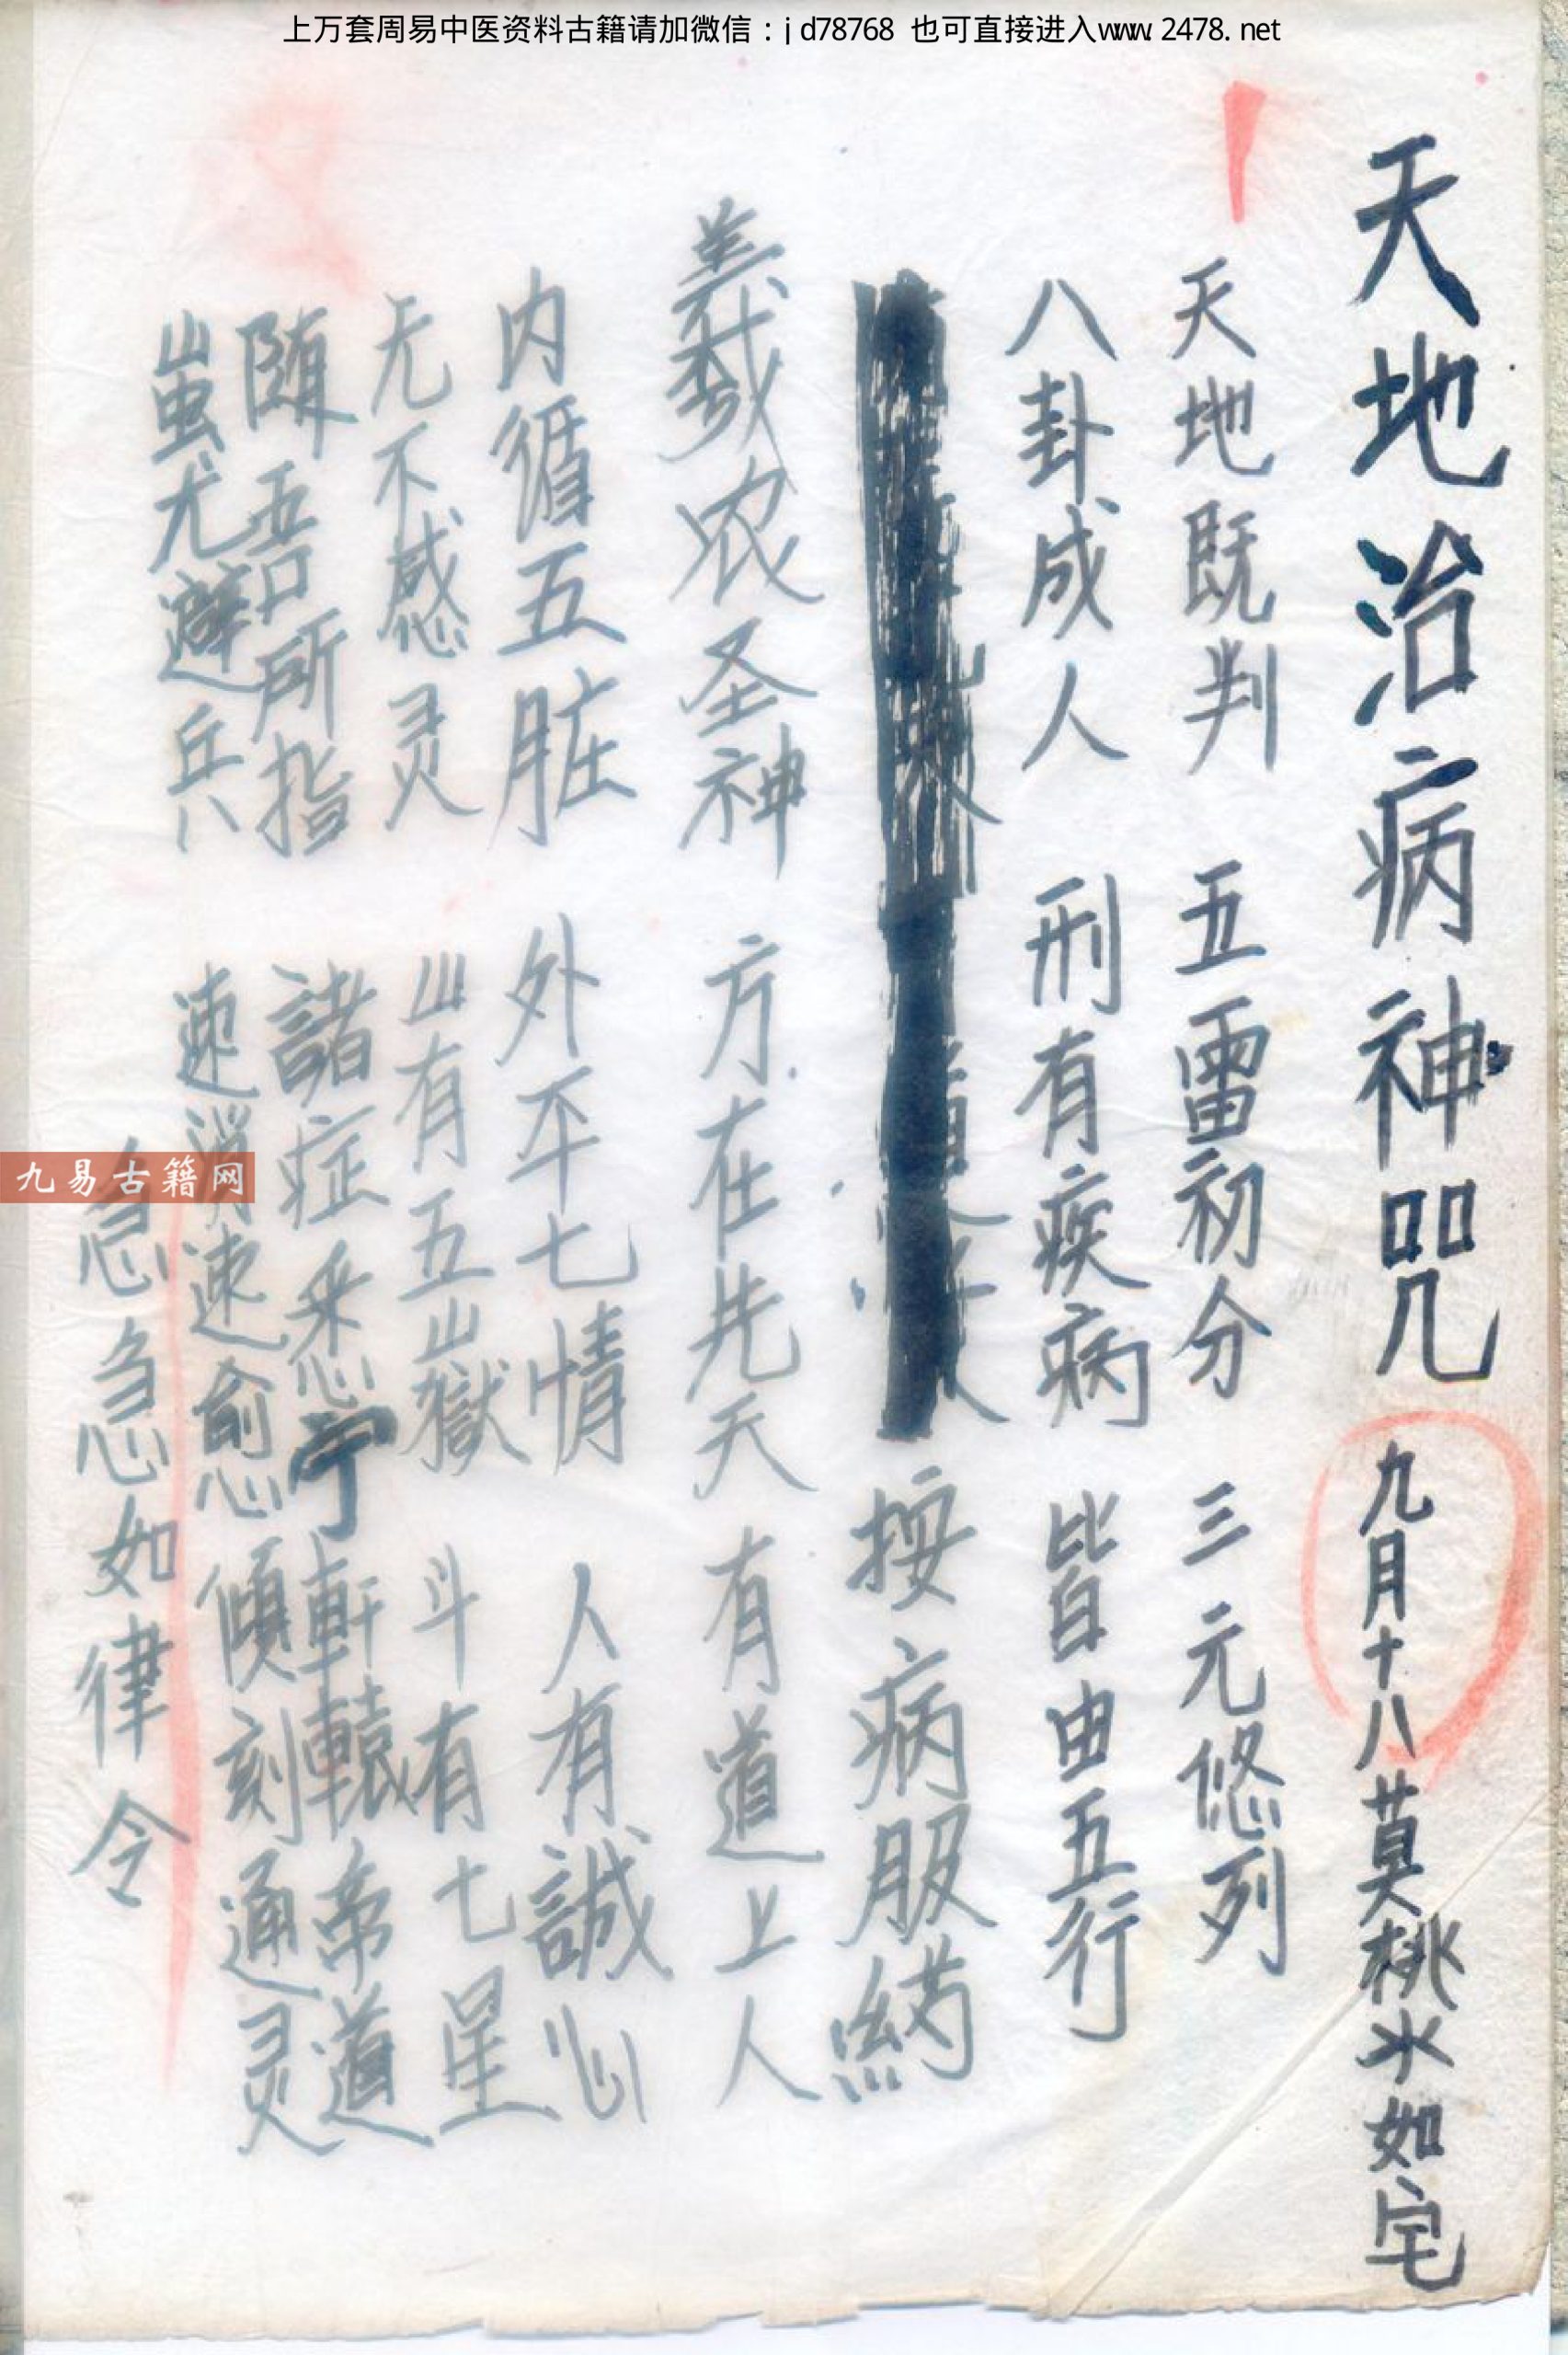 上万套周易中医资料古籍请加微信：jd78768 也可直接进入www.2478.net
天地治病神咒 九月十八莫桃水如宅
天地既判 五雷初分 三元悠列
八卦成人 刑有疾病 皆由五行
按病服药
羲农圣神 方在先天 有道上人
内循五脏 外平七情 人有誠心
无不感灵 山有五嶽 斗有七星
随吾所指 諸症悉宁 軒轅帝道
蚩尤避兵 速消速愈 傾刻通灵
急急如律令
九易古籍网